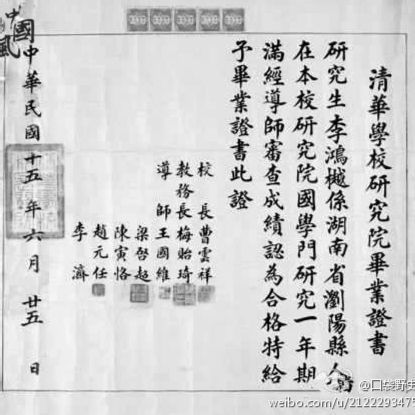 清華學校研究院畢業證書
研究生李鴻樾係湖南省瀏陽縣人
在本校研究院國學門研究一年期
滿經導師審查成績認為合格特給
予畢業證書此證
校長曹雲祥
教務長梅貽琦
導師王國維
梁啓超
陳寅恪
趙元任
李濟
中華民國十五年六月廿五日
中國風
@口袋野史
weibo.com/u/212229347